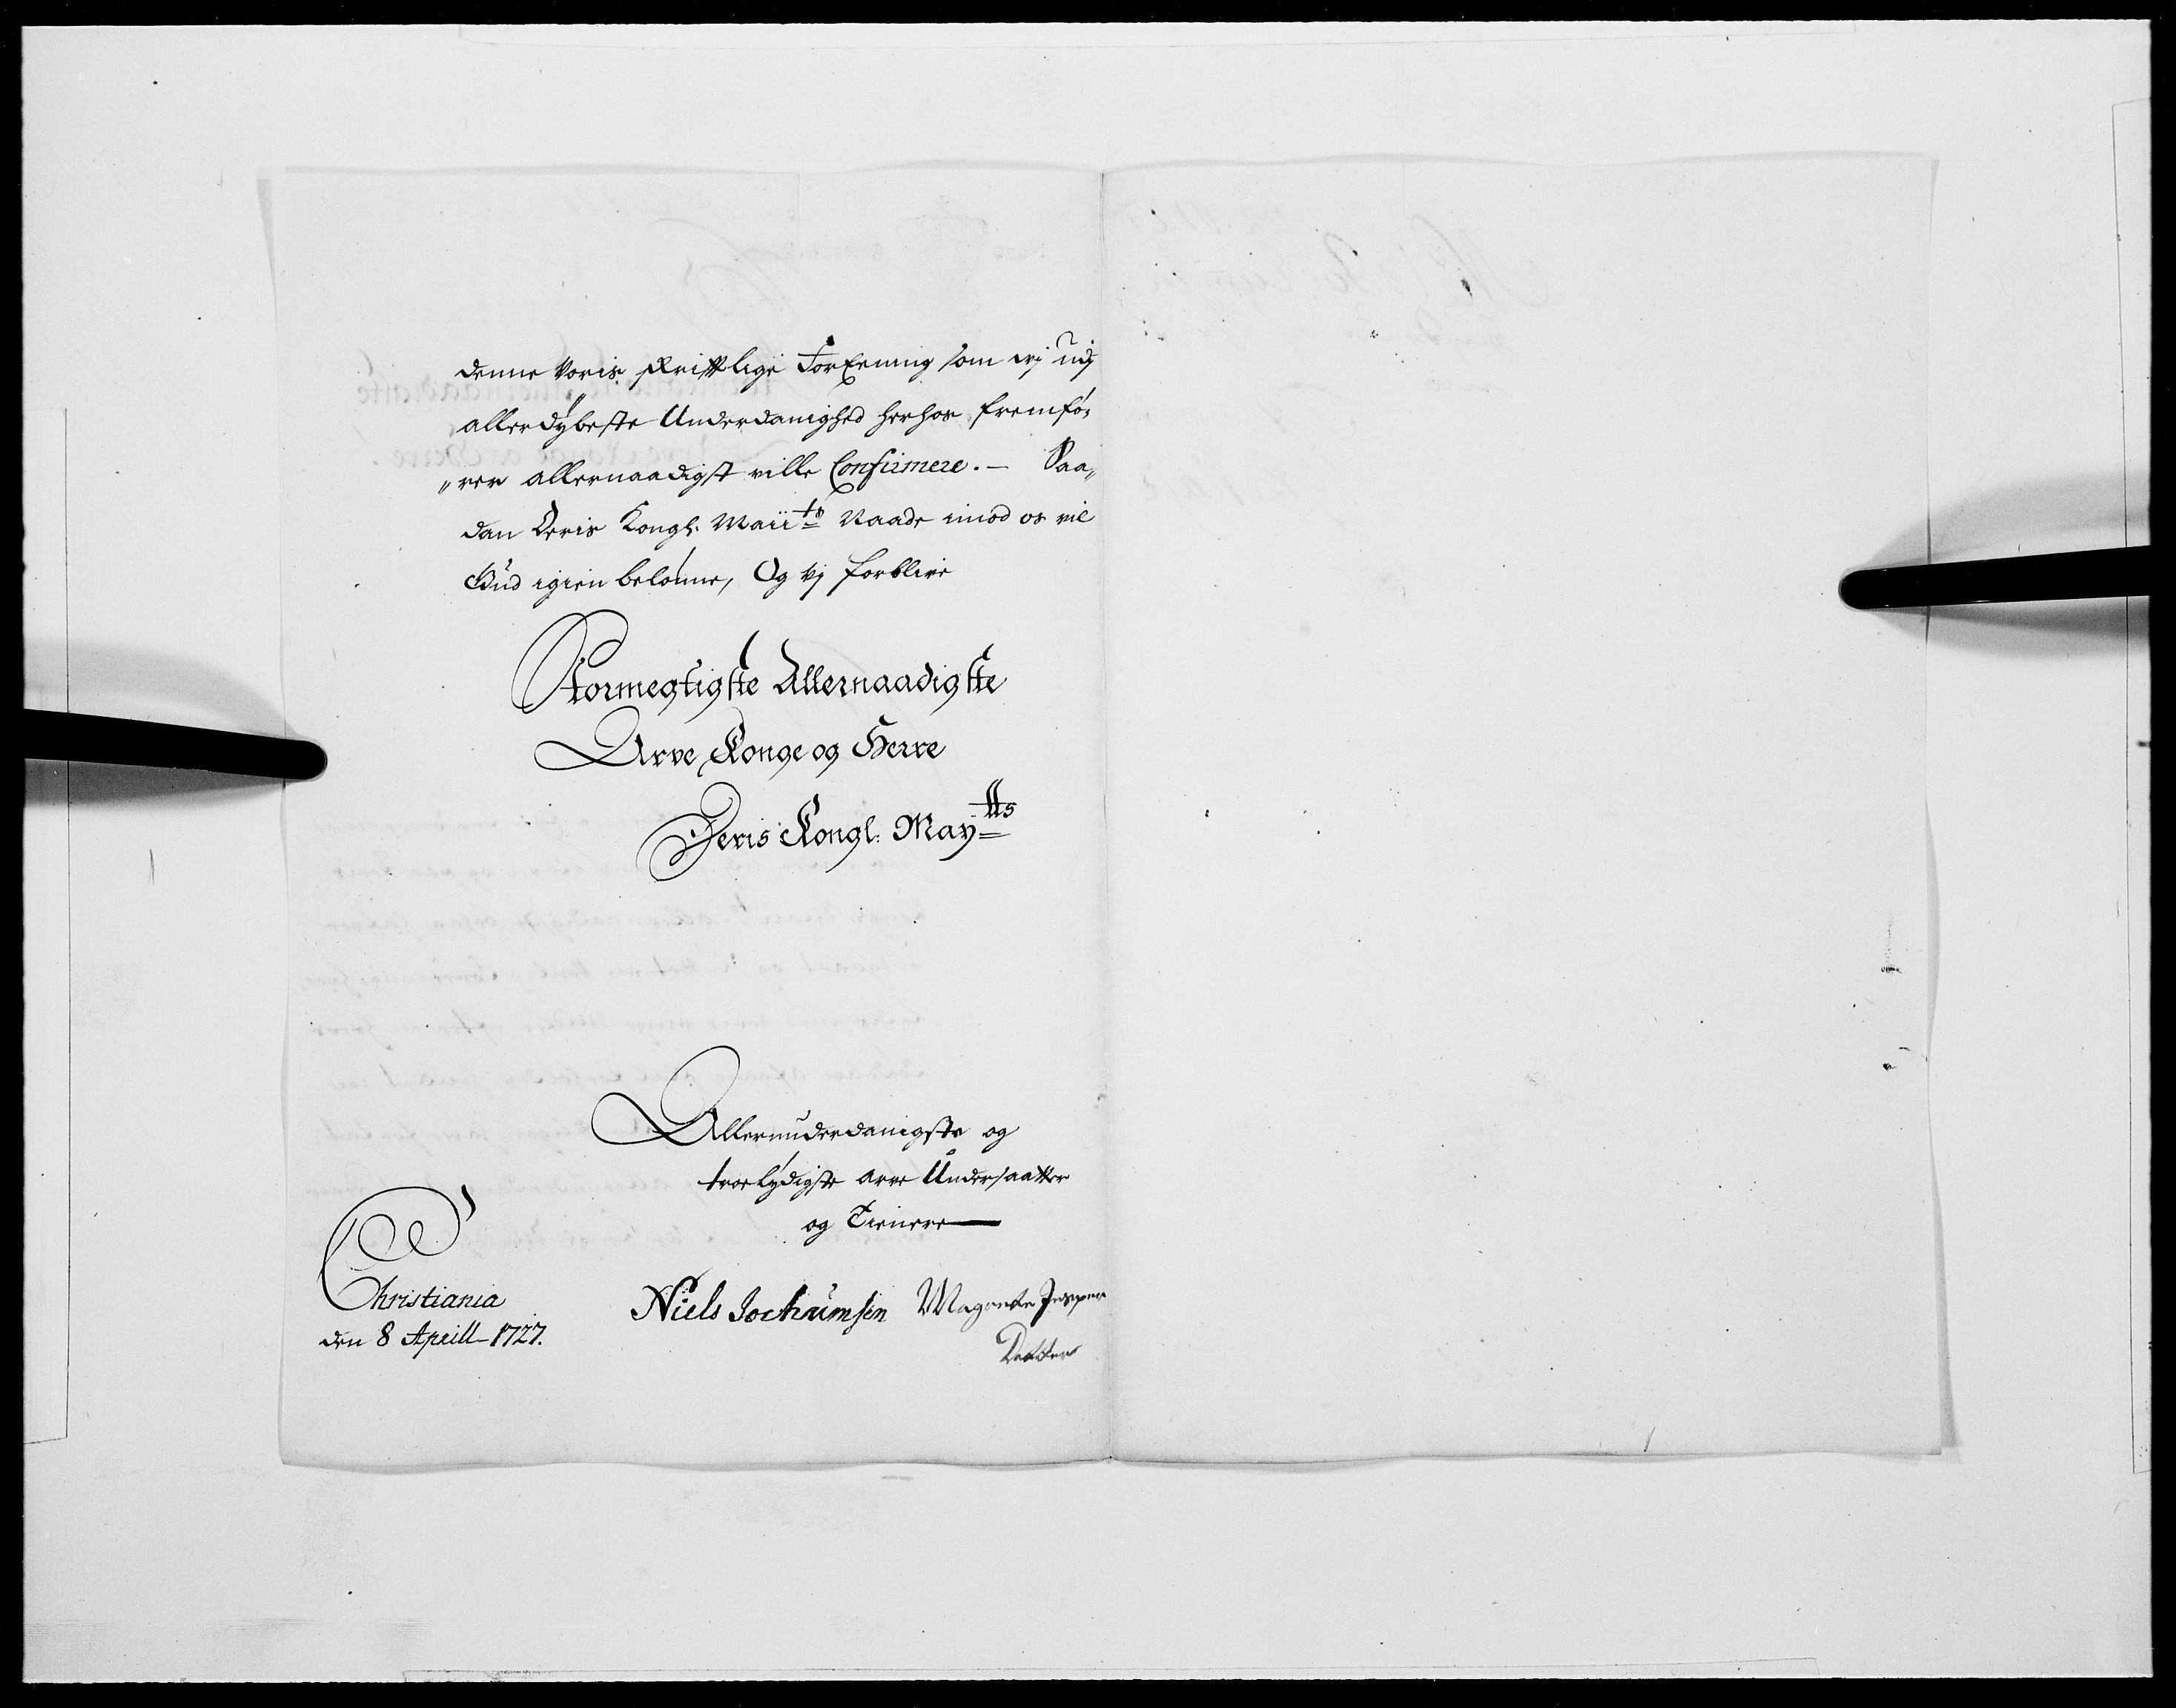 denne voris skrifftlige ForEening som vj udj
allerdybeste Underdanighed herhos fremfø-
„rer allernaadigst ville Confirmere. — Saa„
dan Deris Kongl: Maiitts Naade imod os vil
Gud igien belønne, Og vj forblive
Stormegtigste Allernaadigste
Arve Konge og Herre
Deris Kongl: Maytts
Allerunderdanigste og
troelydigste arve Undersaatter
og Tienere
Christiania
den 8 Aprill 1727.
Niels Jochumsen Magrete Jesper
Datter